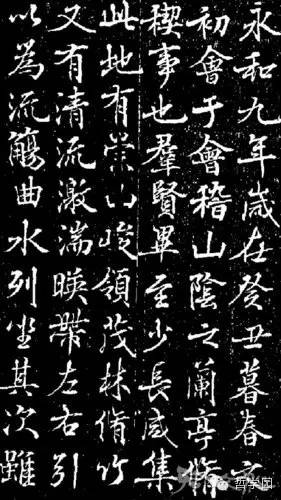 永和九年歲在癸丑暮春之
初會于會稽山陰之蘭亭脩
稧事也羣賢畢至少長咸集
此地有崇山峻領茂林脩竹
又有清流激湍暎帶左右引
以為流觴曲水列坐其次雖
哲学园